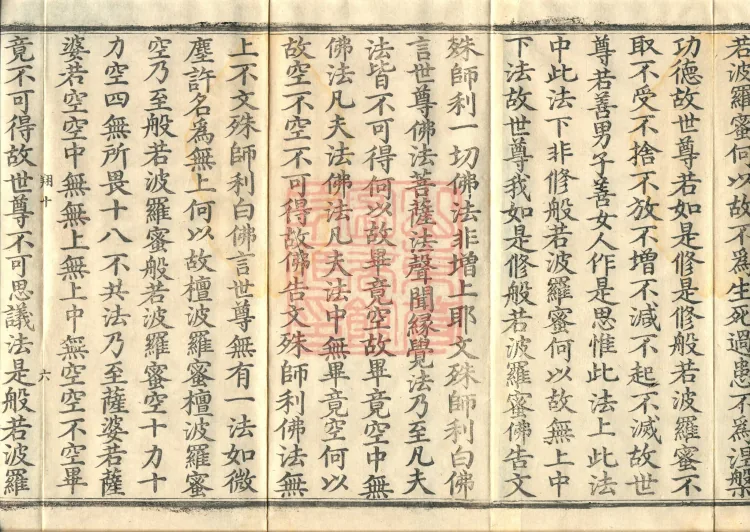 若波羅蜜何以故不爲生死過患不爲涅槃
功德故世尊若如是修是修般若波羅蜜不
取不受不捨不放不增不減不起不滅故世
尊若善男子善女人作是思惟此法上此法
中此法下非修般若波羅蜜何以故無上中
下法故世尊我如是修般若波羅蜜佛告文
殊師利一切佛法非增上耶文殊師利白佛
言世尊佛法菩薩法聲聞緣覺法乃至凡夫
法皆不可得何以故畢竟空故畢竟空中無
佛法凡夫法佛法凡夫法中無畢竟空何以
故空不空不可得故佛告文殊師利佛法無
上不文殊師利白佛言世尊無有一法如微
塵許名為無上何以故檀波羅蜜檀波羅蜜
空乃至般若波羅蜜般若波羅蜜空十力十
力空四無所畏十八不共法乃至薩婆若薩
婆若空空中無無上無上中無空空不空畢
翔十 六
竟不可得故世尊不可思議法是般若波羅